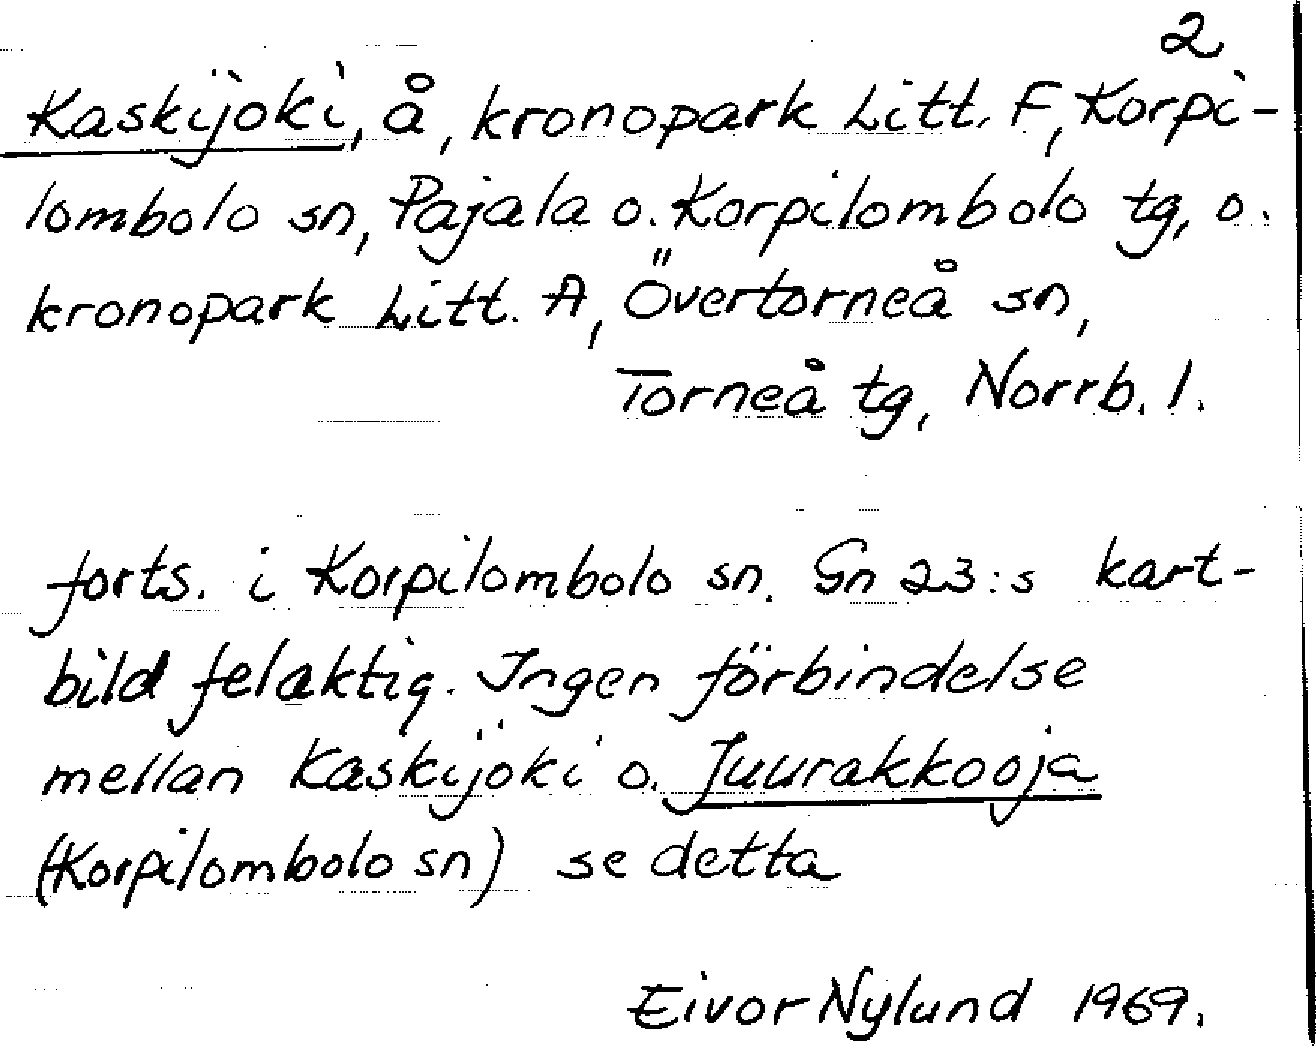 2
Kaskijoki, å, kronopark Litt. F, Korpi-
lombolo sn, Pajala o. Korpilombolo tg, o.
kronopark Litt. A, Övertorneå sn,
Torneå tg, Norrb. l.
forts. i Korpilombolo sn. Gn 23:s kart-
bild felaktig. Ingen förbindelse
mellan Kaskijoki o. Juurakkooja
(Korpilombolo sn) se detta
Eivor Nylund 1969.